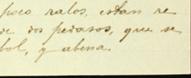 poco ralos, estan re
se dos pedasos, que se
bol, y abena.